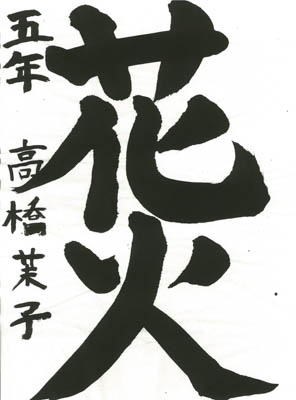 花火
五年 高橋茉子